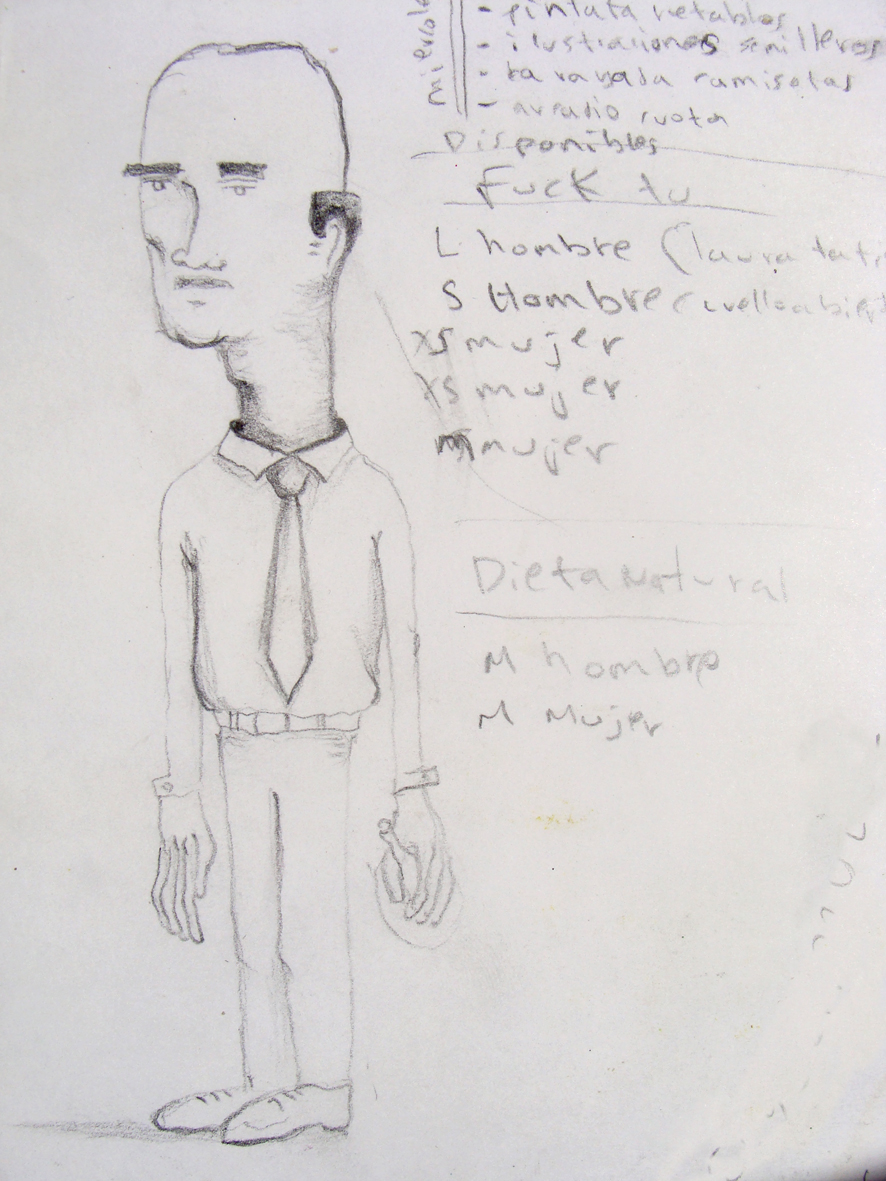 miercole
- pintata retablos
- ilustraciones semilleros
- camisetas
- ruota
Disponibles
Fuck tu
L hombre (laura tati
S Hombre (cuello abiert
XS mujer
XS mujer
M mujer
Dieta Natural
M hombre
M Mujer